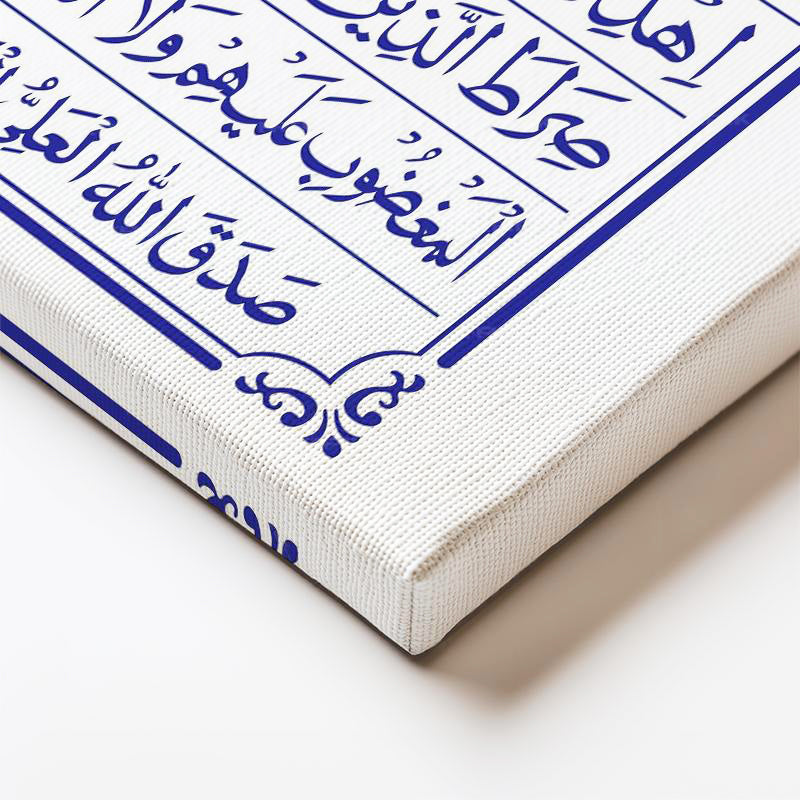 اِهْدِ
صِرَاطَ الَّذِينَ
الْمَغْضُوبِ عَلَيْهِمْ وَلَا
صَدَقَ اللّٰهُ الْعَلِيُّ